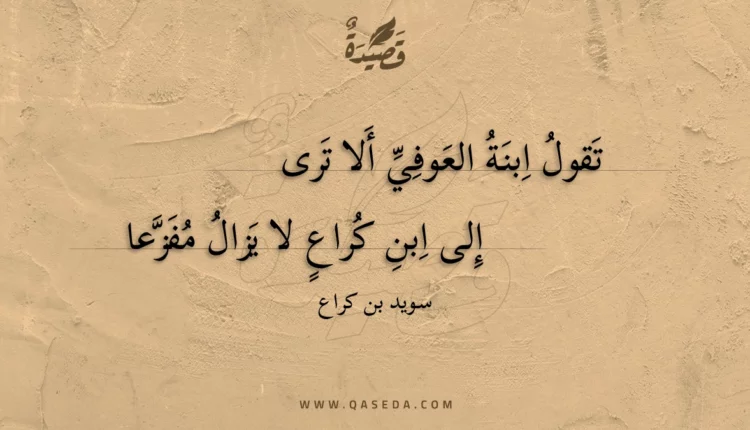 قَصِيدَةٌ
تَقولُ اِبنَةُ العَوفِيِّ أَلا تَرى
إِلى اِبنِ كُراعٍ لا يَزالُ مُفَزَّعا
سويد بن كراع
WWW.QASEDA.COM